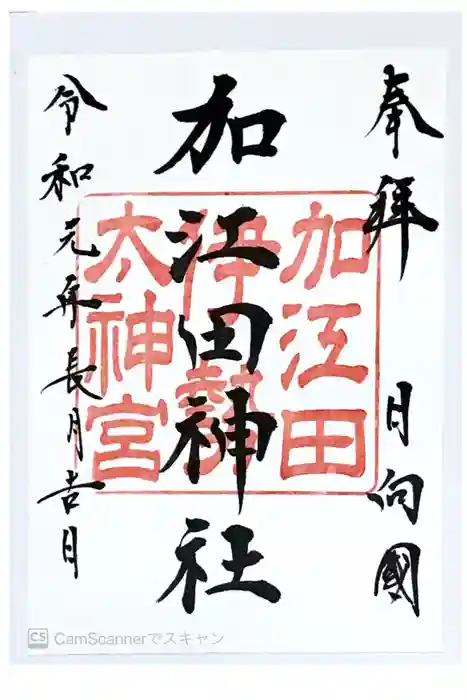 奉拝 日向國
加江田神社
加江田
伊勢
太神宮
令和元年長月吉日
CS CamScannerでスキャン